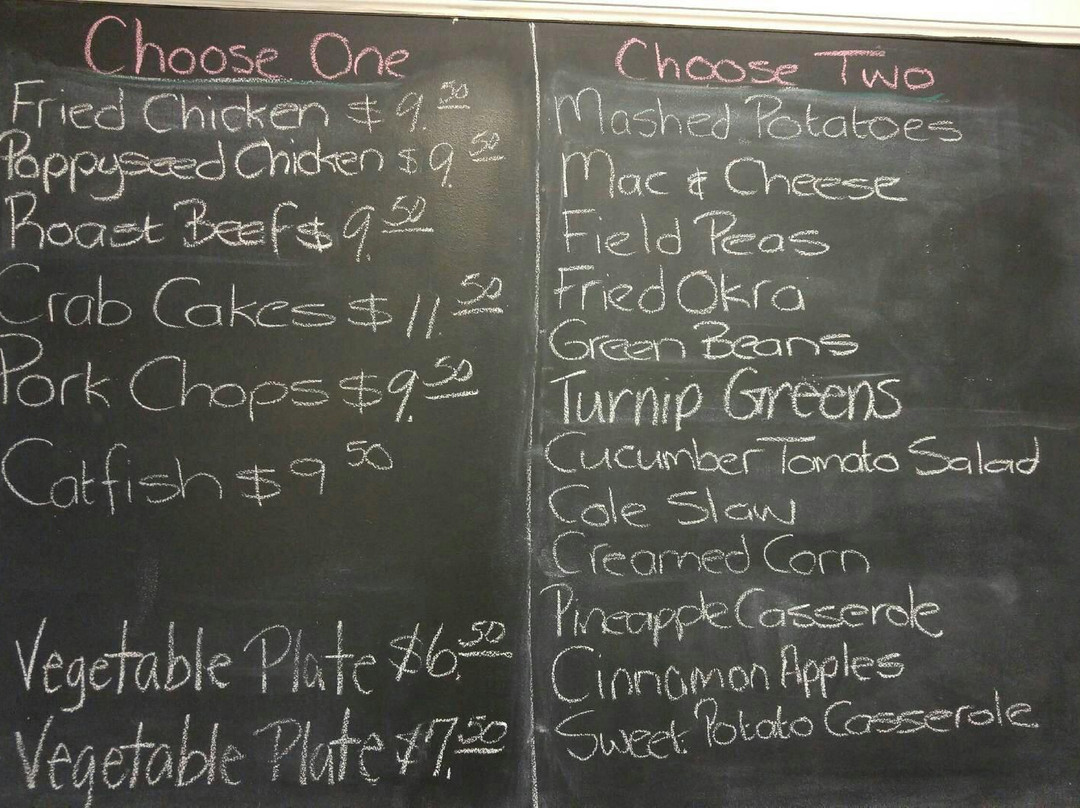 Choose One
Fried Chicken $9.50
Poppyseed Chicken $9.50
Roast Beef $9.50
Crab Cakes $11.50
Pork Chops $9.50
Catfish $9 50
Vegetable Plate $6.50
Vegetable Plate $7.50
Choose Two
Mashed Potatoes
Mac & Cheese
Field Peas
Fried Okra
Green Beans
Turnip Greens
Cucumber Tomato Salad
Cole Slaw
Creamed Corn
Pineapple Casserole
Cinnamon Apples
Sweet Potato Casserole